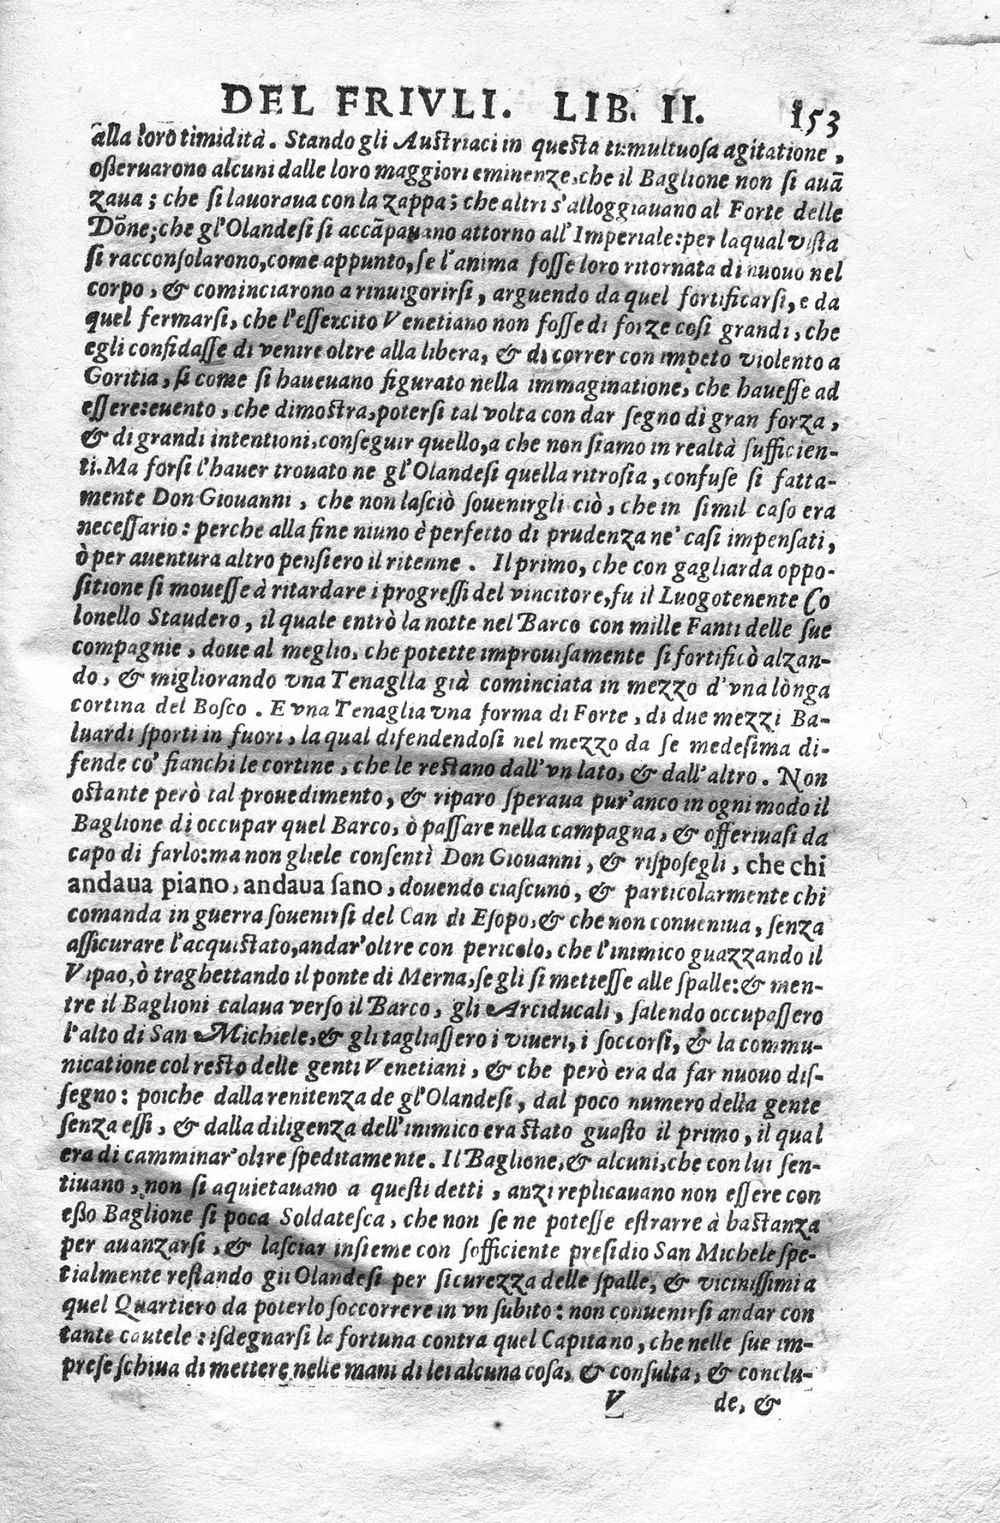 DEL FRIVLI. LIB. II. 153
alla loro timidità. Stando gli Austriaci in questa tumultuosa agitatione,
oßeruarono alcuni dalle loro maggiori eminenze, che il Baglione non si auā
zaua; che si lauoraua con la zappa; che altri s'alloggiauano al Forte delle
Dōne; che gl'Olandesi si accāpauano attorno all'Imperiale: per la qual vista
si racconsolarono, come appunto, se l'anima fosse loro ritornata di nuouo nel
corpo, & cominciarono a rinuigorirsi, arguendo da quel fortificarsi, e da
quel fermarsi, che l'essercito Venetiano non fosse di forze così grandi, che
egli confidasse di venire oltre alla libera, & di correr con impeto violento a
Goritia, si come si haueuano figurato nella immaginatione, che hauesse ad
essere: euento, che dimostra, potersi tal volta con dar segno di gran forza,
& di grandi intentioni, conseguir quello, a che non siamo in realtà sufficien-
ti. Ma forsi l'hauer trouato ne gl'Olandesi quella ritrosia, confuse si fatta-
mente Don Giouanni, che non lasciò souenirgli ciò, che in simil caso era
necessario: perche alla fine niuno è perfetto di prudenza ne' casi impensati,
ò per auentura altro pensiero il ritenne. Il primo, che con gagliarda oppo-
sitione si mouesse à ritardare i progressi del vincitore, fu il Luogotenente Co
lonello Staudero, il quale entrò la notte nel Barco con mille Fanti delle sue
compagnie, doue al meglio, che potette improuisamente si fortificò alzan-
do, & migliorando vna Tenaglia già cominciata in mezzo d'vna lònga
cortina del Bosco. E vna Tenaglia vna forma di Forte, di due mezzi Ba-
luardi sporti in fuori, la qual difendendosi nel mezzo da se medesima di-
fende co' fianchi le cortine, che le restano dall'vn lato, & dall'altro. Non
ostante però tal prouedimento, & riparo speraua pur'anco in ogni modo il
Baglione di occupar quel Barco, ò passare nella campagna, & offeriuasi da
capo di farlo: ma non gliele consentì Don Giouanni, & risposegli, che chi
andaua piano, andaua sano, douendo ciascuno, & particolarmente chi
comanda in guerra souenirsi del Can di Esopo, & che non conueniua, senza
assicurare l'acquistato, andar'oltre con pericolo, che l'inimico guazzando il
Vipao, ò traghettando il ponte di Merna, segli si mettesse alle spalle: & men-
tre il Baglioni calaua verso il Barco, gli Arciducali, salendo occupassero
l'alto di San Michiele, & gli tagliassero i viueri, i soccorsi, & la commu-
nicatione col resto delle genti Venetiani, & che però era da far nuouo dis-
segno: poiche dalla renitenza de gl'Olandesi, dal poco numero della gente
senza essi, & dalla diligenza dell'inimico era stato guasto il primo, il qual
era di camminar'oltre speditamente. Il Baglione, & alcuni, che con lui sen-
tiuano, non si aquietauano a questi detti, anzi replicauano non essere con
eßo Baglione si poca Soldatesca, che non se ne potesse estrarre à bastanza
per auanzarsi, & lasciar insieme con sofficiente presidio San Michele spe-
tialmente restando gli Olandesi per sicurezza delle spalle, & vicinissimi a
quel Quartiero da poterlo soccorrere in vn subito: non conuenirsi andar con
tante cautele: isdegnarsi la fortuna contra quel Capitano, che nelle sue im-
prese schiua di mettere nelle mani di lei alcuna cosa, & consulta, & conclu-
V de, &